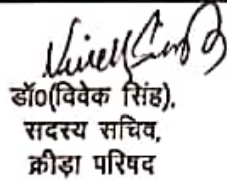 डॉ0(विवेक सिंह),
सदस्य सचिव,
क्रीड़ा परिषद